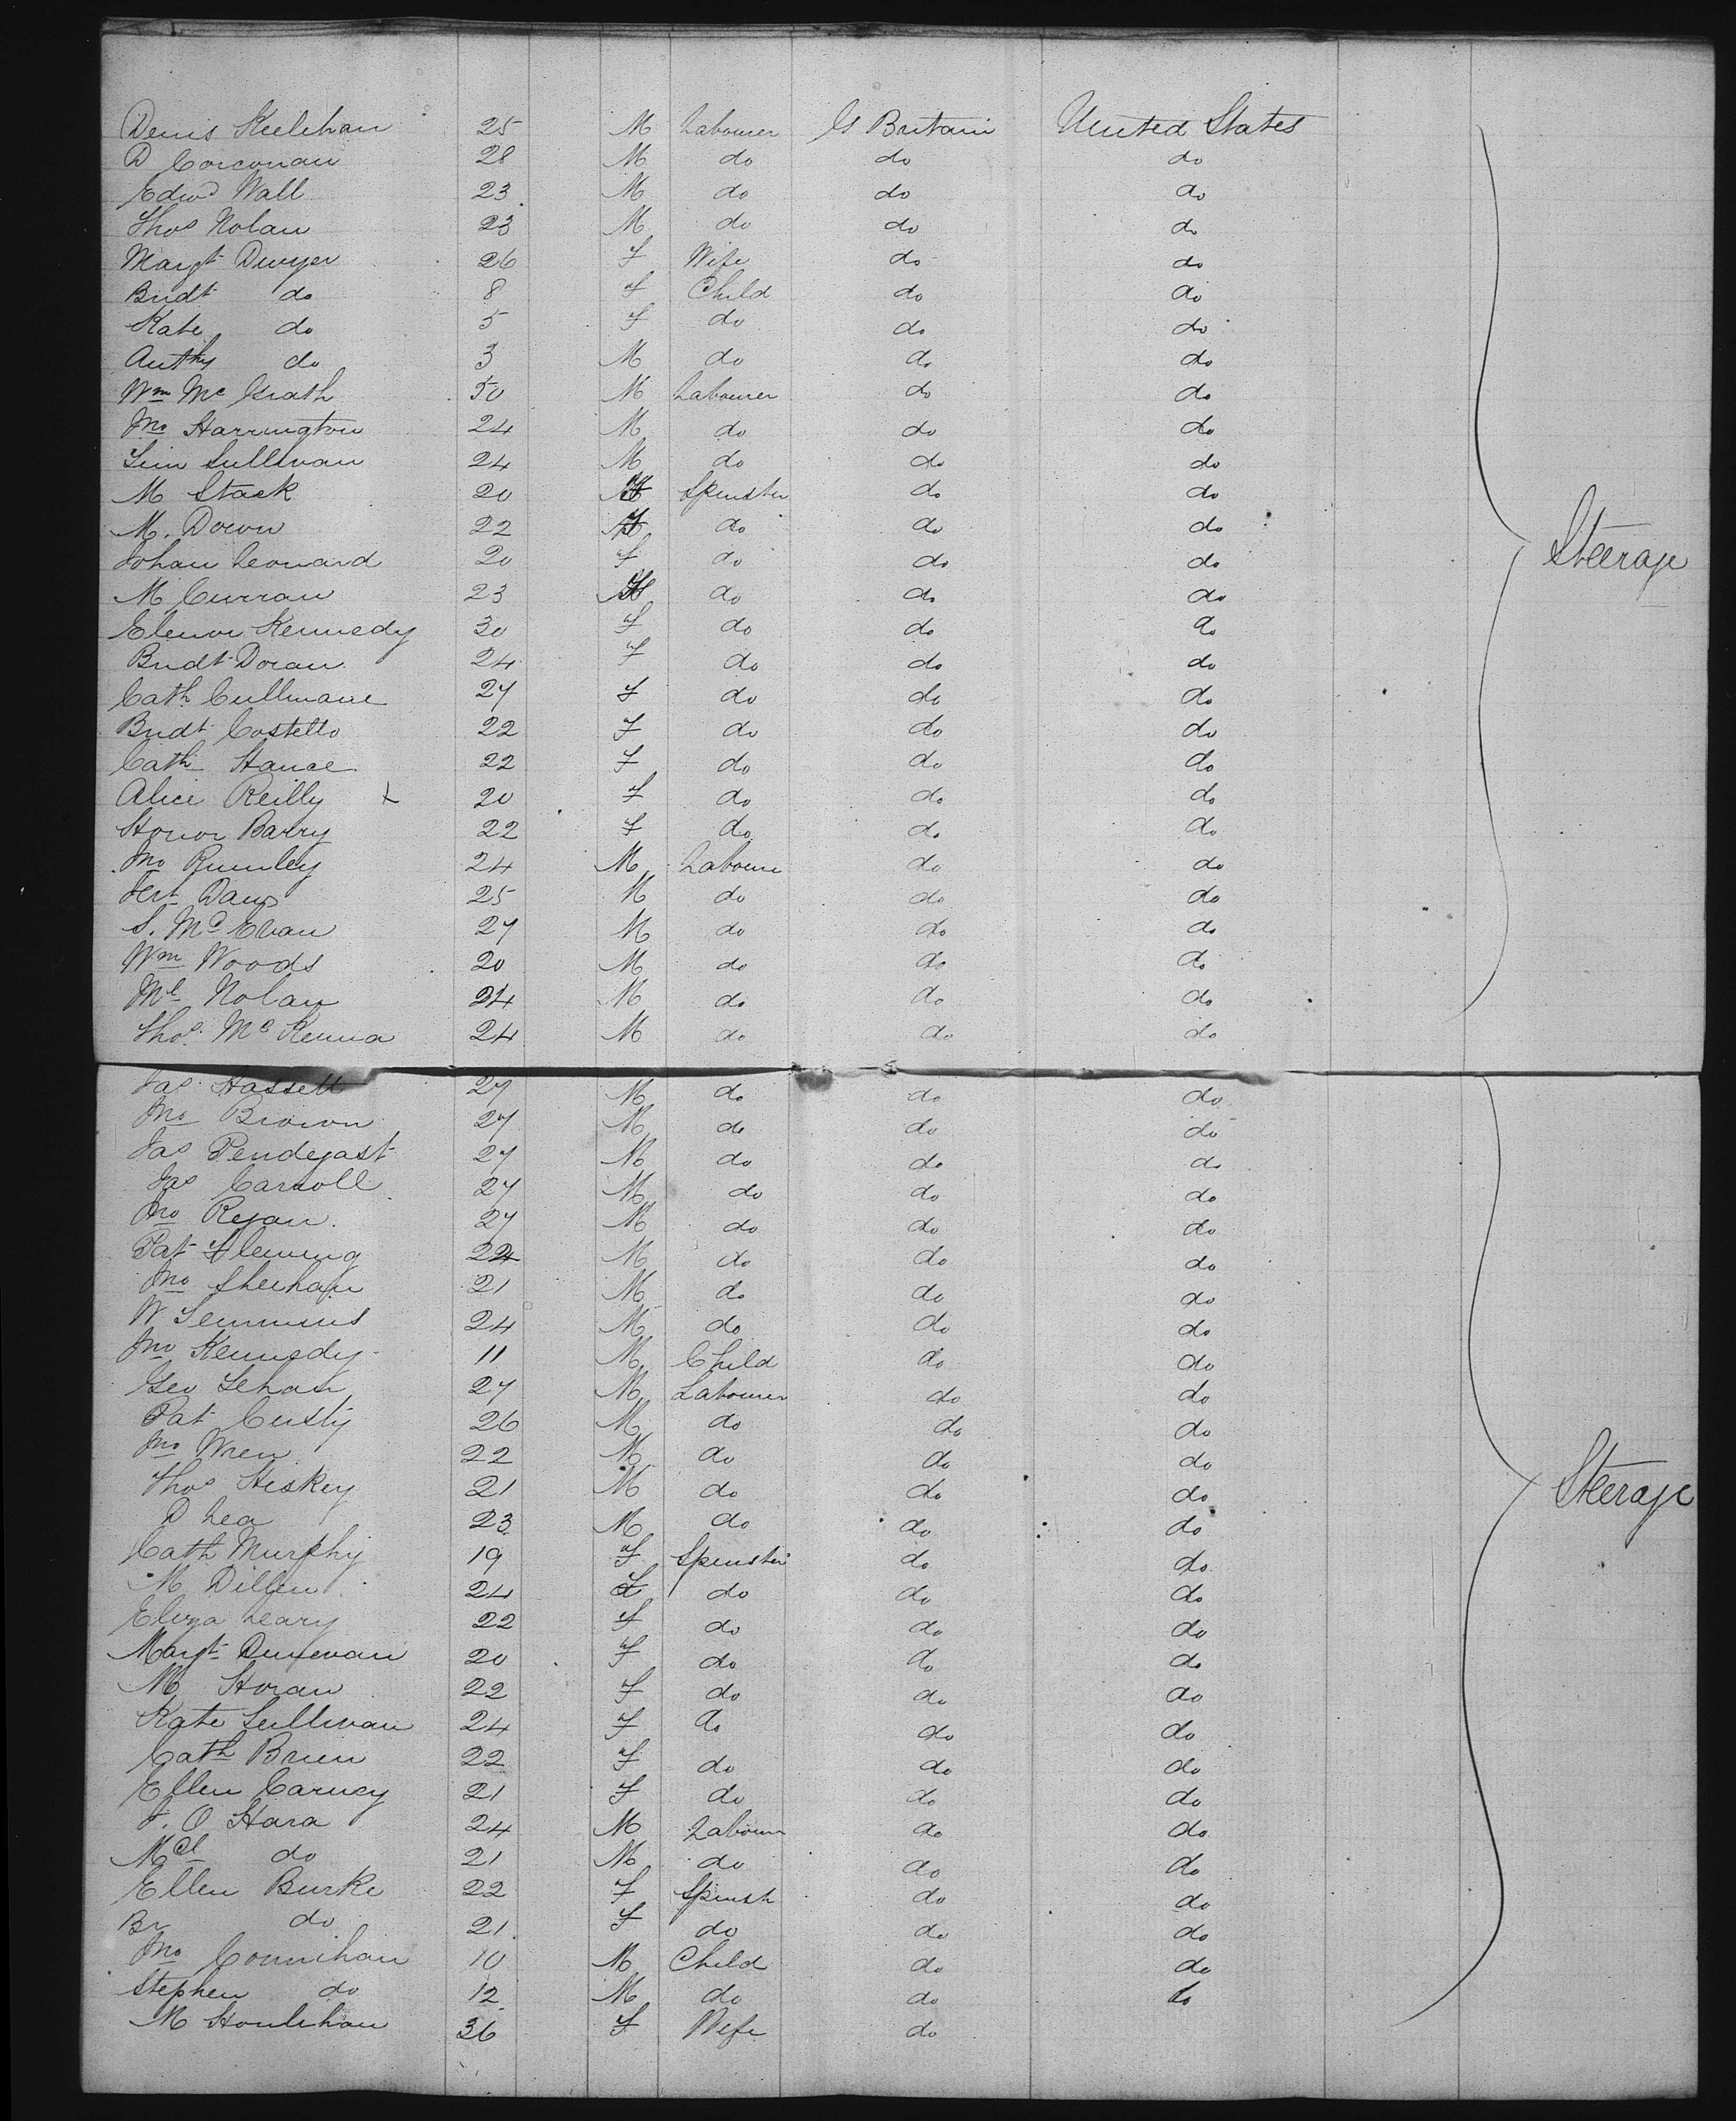 Denis Keelehan 25 M Labourer G Britain United States
D Corcoran 28 M do do do
Edwd Wall 23 M do do do
Thos Nolan 23 M do do do
Margt Dwyer 26 F Wife do do
Bridt do 8 F Child do do
Kate do 5 F do do do
Anthy do 3 M do do do
Wm Mc Grath 50 M Labourer do do
Jno Harrington 24 M do do do
Tim Sullivan 24 M do do do
M Stack 20 F Spinster do do
M. Doron 22 F do do do
Johan Leonard 20 F do do do
Steerage
M Curran 23 F do do do
Elenor Kennedy 30 F do do do
Bridt Doran 24 F do do do
Cath Cullinane 27 F do do do
Bridt Costello 22 F do do do
Cath Hance 22 F do do do
Alice Reilly 20 F do do do
Honor Barry 22 F do do do
Jno Rumley 24 M Laboure do do
Jert Davis 25 M do do do
S. Mc Evan 27 M do do do
Wm Woods 20 M do do do
Ml Nolan 24 M do do do
Thos Mc Kenna 24 M do do do
Jas Hassett 27 M do do do
Jno Brown 27 M do do do
Jas Pendegast 27 M do do do
Jas Carroll 27 M do do do
Jno Ryan 27 M do do do
Pat Fleming 24 M do do do
Jno Sheehan 21 M do do do
W Temmins 24 M do do do
Jno Kennedy 11 M Child do do
Geo Lehan 27 M Labourer do do
Pat Custy 26 M do do do
Jno Wren 22 M do do do
Thos Hiskey 21 M do do do
Steerage
D Lea 23 M do do do
Cath Murphy 19 F Spinster do do
M Dillen 24 F do do do
Eliza Leary 22 F do do do
Margt Dunevan 20 F do do do
M Horan 22 F do do do
Kate Sullivan 24 F do do do
Cath Brien 22 F do do do
Ellen Carney 21 F do do do
J. O Hara 24 M Labour do do
Mcl do 21 M do do do
Ellen Burke 22 F Spinst do do
Br do 21 F do do do
Jno Counihan 10 M Child do do
Stephen do 12 M do do do
M Houlihan 36 F Wife do